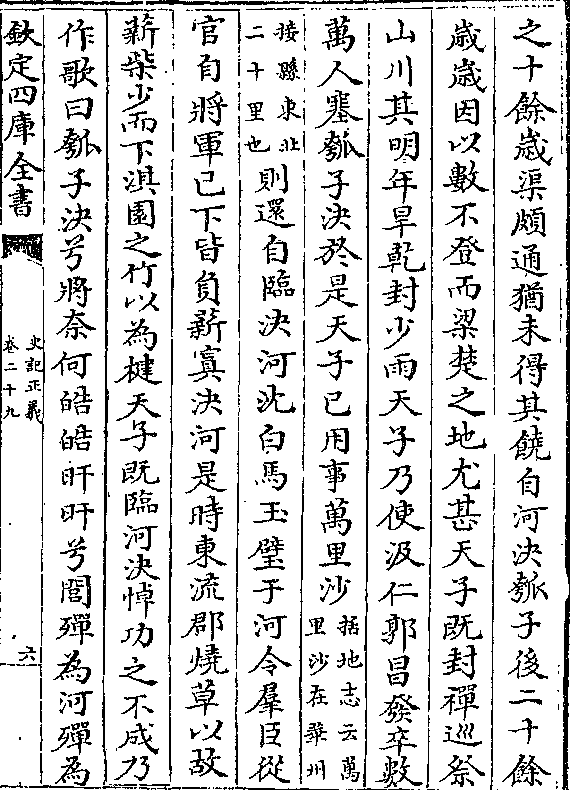 之十餘歲渠頗通猶未得其饒自河決瓠子後二十餘
歲歲因以數不登而梁楚之地尤甚天子既封禪巡祭
山川其明年旱乾封少雨天子乃使汲仁郭昌發卒數
萬人塞瓠子決於是天子已用事萬里沙
括地志云萬
里沙在華州
接縣東北
二十里也
則還自臨決河沈白馬玉璧于河令羣臣從
官自將軍已下皆負薪窴決河是時東流郡燒草以故
薪柴少而下淇園之竹以為楗天子既臨河決悼功之不成乃
作歌曰瓠子決兮將奈何皓皓旰旰兮閭殫為河殫為
欽定四庫全書
史記正義
卷二十九
六